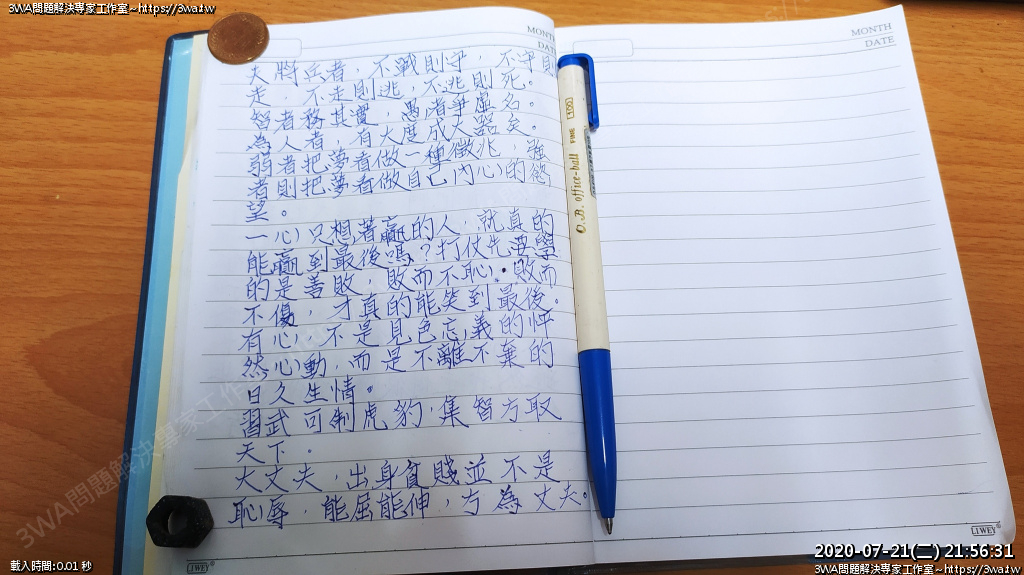 3WA問題解決專家工作室~https://3wa.tw
3WA問題解決專家工作室~https://3wa.tw
MONTH
DATE
MONTH
DATE
夫將兵者，不戰則守，不守則
走，不走則逃，不逃則死。
智者務其實，愚者爭虛名。
為人者，有大度成大器矣。
弱者把夢看做一種徵兆，強
者則把夢看做自己內心的慾
望。
一心只想著贏的人，就真的
能贏到最後嗎？打仗先要學
的是善敗，敗而不恥，敗而
不傷，才真的能笑到最後。
有心，不是見色忘義的怦
然心動，而是不離不棄的
日久生情。
習武可制虎豹，集智方取
天下。
大丈夫，出身貧賤並不是
恥辱，能屈能伸，方為丈夫。
O.B. office-ball FINE 100
LIWEY
LIWEY
3WA問題解決專家工作室
載入時間:0.01 秒
2020-07-21(二) 21:56:31
3WA問題解決專家工作室~https://3wa.tw